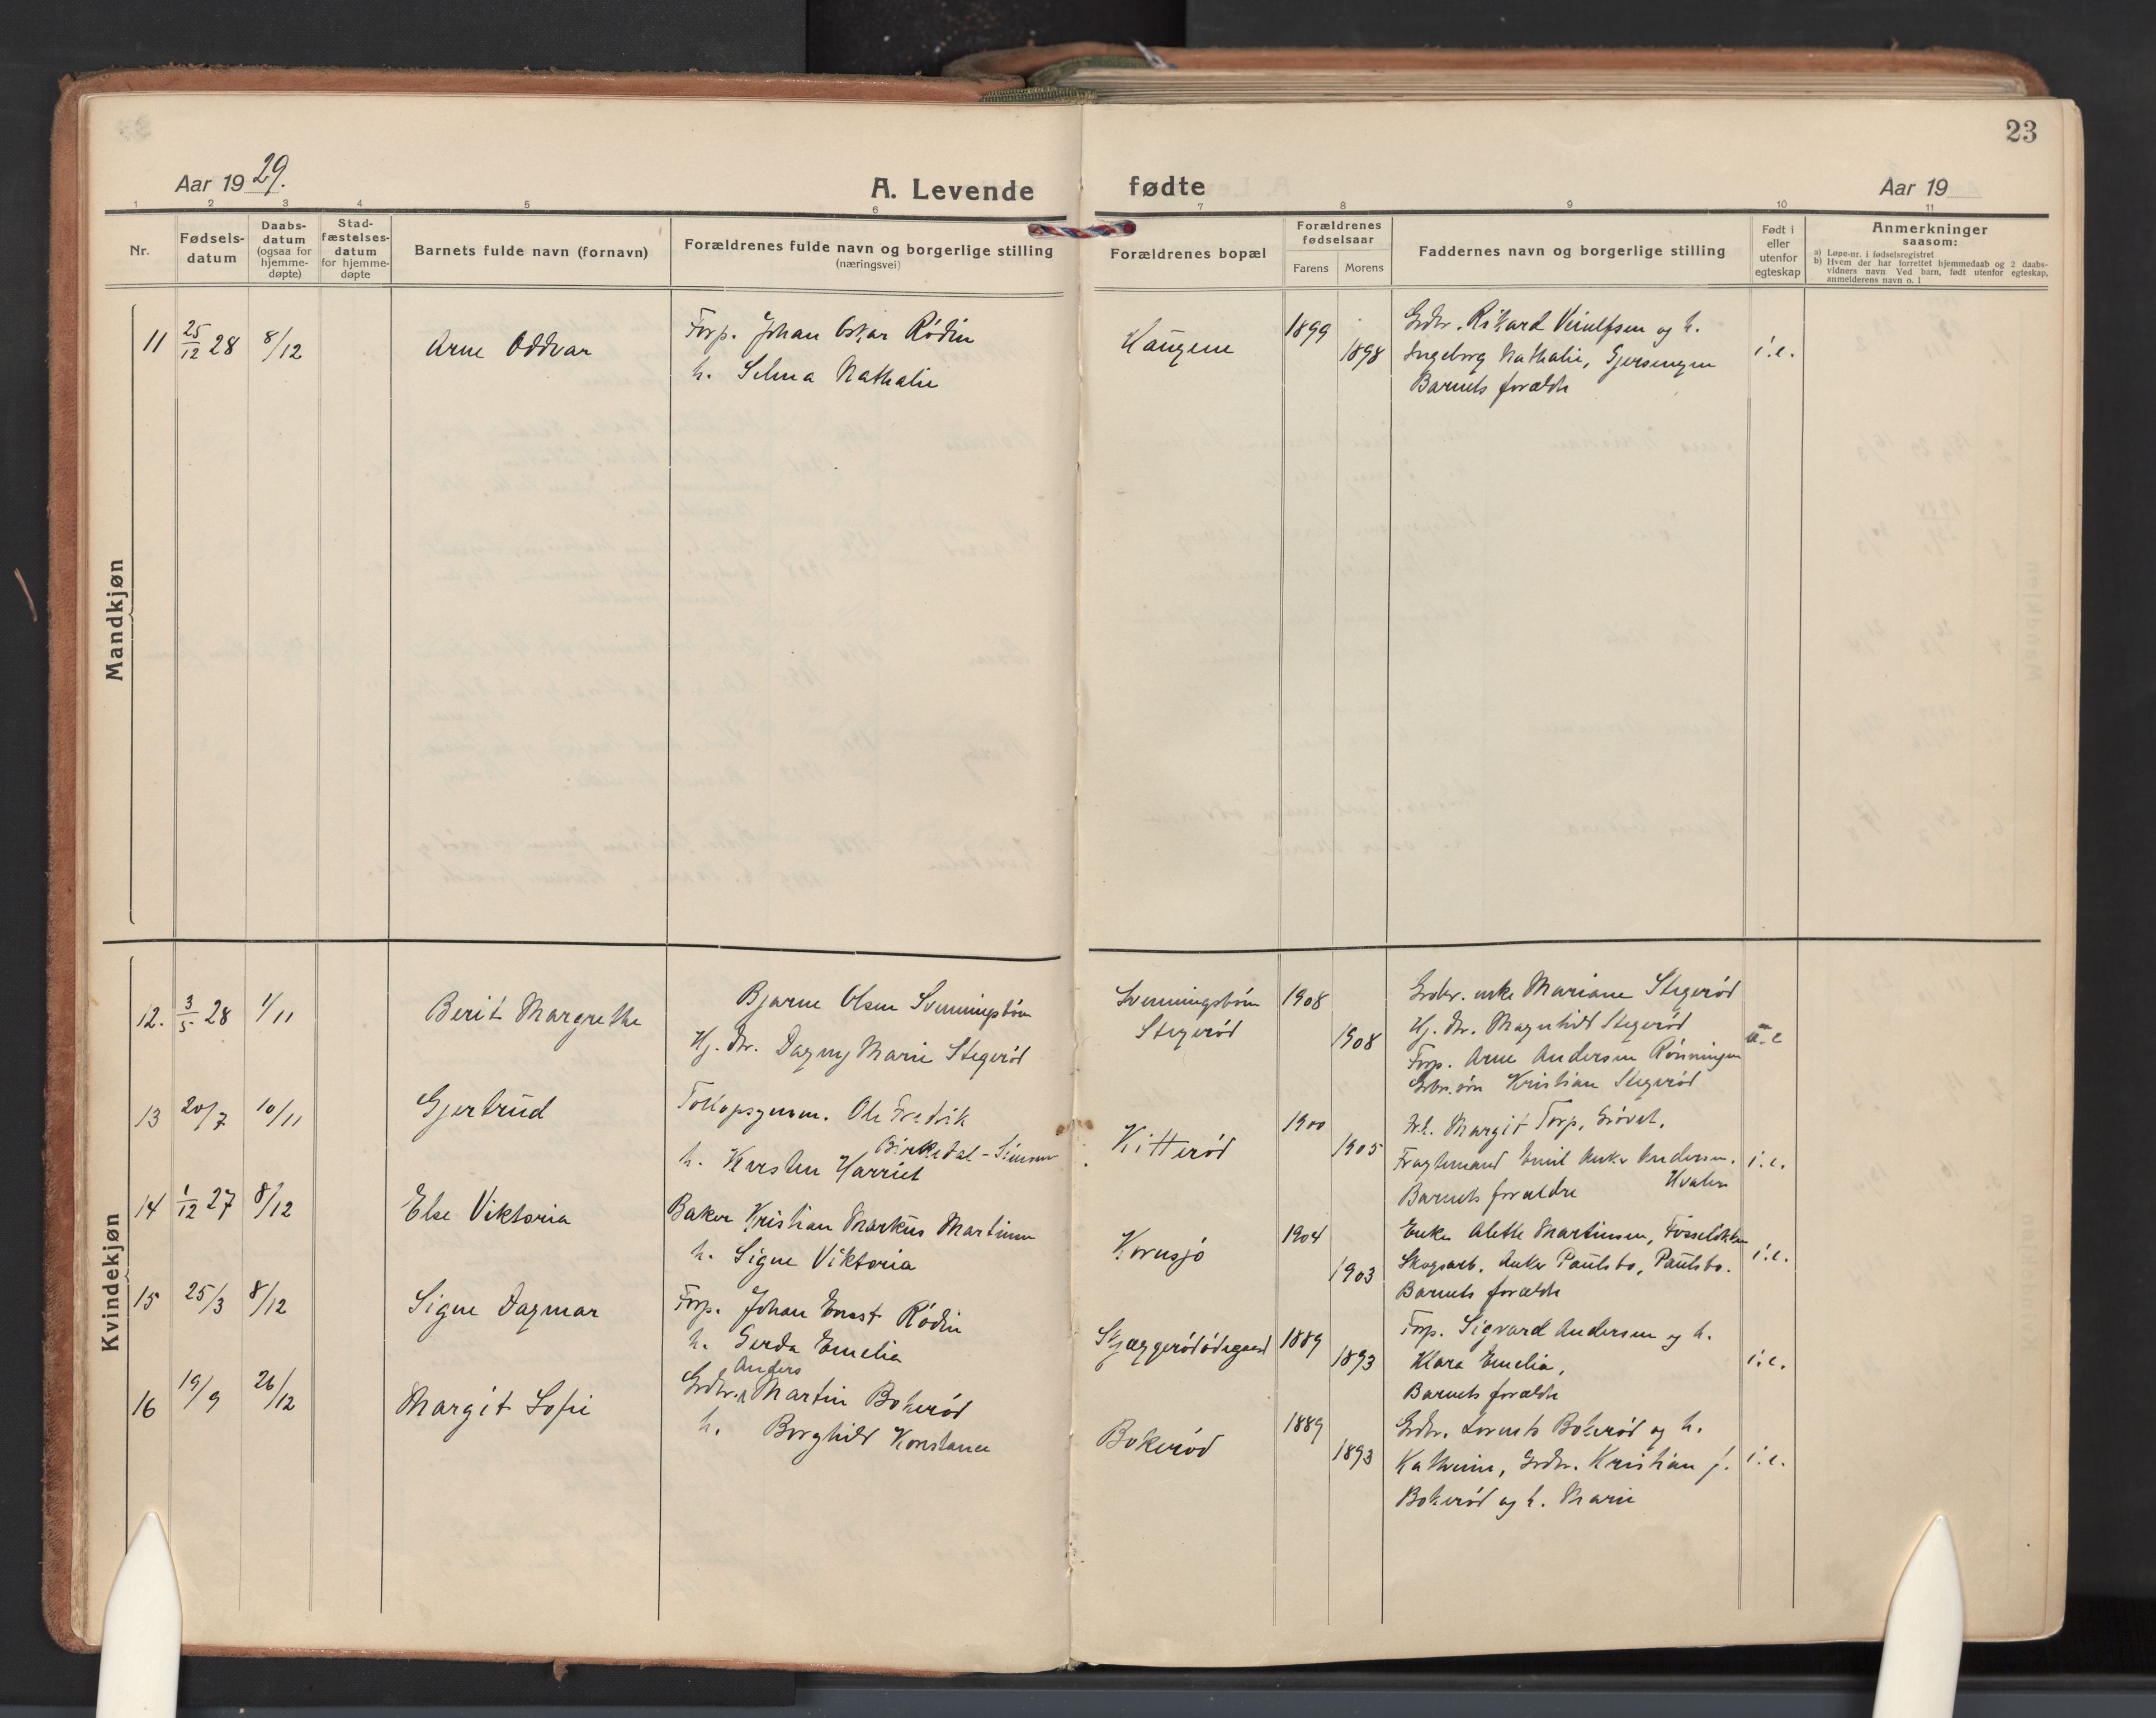 23
Aar 1929.
A. Levende fødte
Aar 19
1 2 3 4 5 6 7 8 9 10 11
Nr.
Fødsels-
datum
Daabs-
datum
(ogsaa for
hjemme-
døpte)
Stad-
fæstelses-
datum
for hjemme-
døpte
Barnets fulde navn (fornavn)
Forældrenes fulde navn og borgerlige stilling
(næringsvei)
Forældrenes bopæl
Forældrenes
fødselsaar
Farens Morens
Faddernes navn og borgerlige stilling
Født i
eller
utenfor
egteskap
Anmerkninger
saasom:
a) Løpe-nr. i fødselsregistret
b) Hvem der har forrettet hjemmedaab og 2 daabs-
vidners navn. Ved barn, født utenfor egteskap,
anmelderens navn o. l
Mandkjøn
11 25/12 28 8/12
Arne Oddvar
Forp. Johan Oskar Rödin
h. Selma Nathalie
Haugene
1899
1898
Grdbr. Rikard Veiulfsen og h.
Ingeborg Nathalie, Gjersengen
Barnets forældre
i.e.
Kvindekjøn
12. 3/5 28 1/11
Berit Margrethe
Bjarne Olsen Svenningsbøn
Hj. dtr. Dagny Marie Stegerød
Svenningsbøn
Stegerød
1908
1908
Grdbr. enke Mariane Stegerød
Hj. dtr. Magnhild Stegerød
Forp. Arne Andersen Rønningen
Grbr.søn Kristian Stegerød
u.e
13 20/7 10/11
Gjertrud
Toldopsynsm. Ole Fredrik
Birkedal-Simensen
h. Kirsten Harriet
Kitterød
1900
1905
Frk. Margit Torp,
Fragtemand Emil Anker Andersen.
Hvalen
Barnets forældre
i.e.
14 1/12 27 8/12
Else Viktoria
Baker Kristian Markus Martinsen
h. Signe Viktoria
Kornsjø
1904
1903
Enke Alette Martinsen, Fosseløkken
Skogsarb. Anker Paulsbo, Paulsbo.
Barnets forældre
i.e.
15 25/3 8/12
Signe Dagmar
Forp. Johan Ernst Rödin
h. Gerda Emelia
Skjæggerødødegaard
1889
1893
Forp. Sigvard Andersen og h.
Klara Emelia,
Barnets forældre
i.e.
16 19/9 26/12
Margit Sofie
Anders
Grdbr. Martin Bokerød
h. Borghild Konstance
Bokerød
1889
1893
Grdbr. Lorents Bokerød og h.
Kathrine, Grdbr. Kristian J.
Bokerød og h. Marie
i.e.